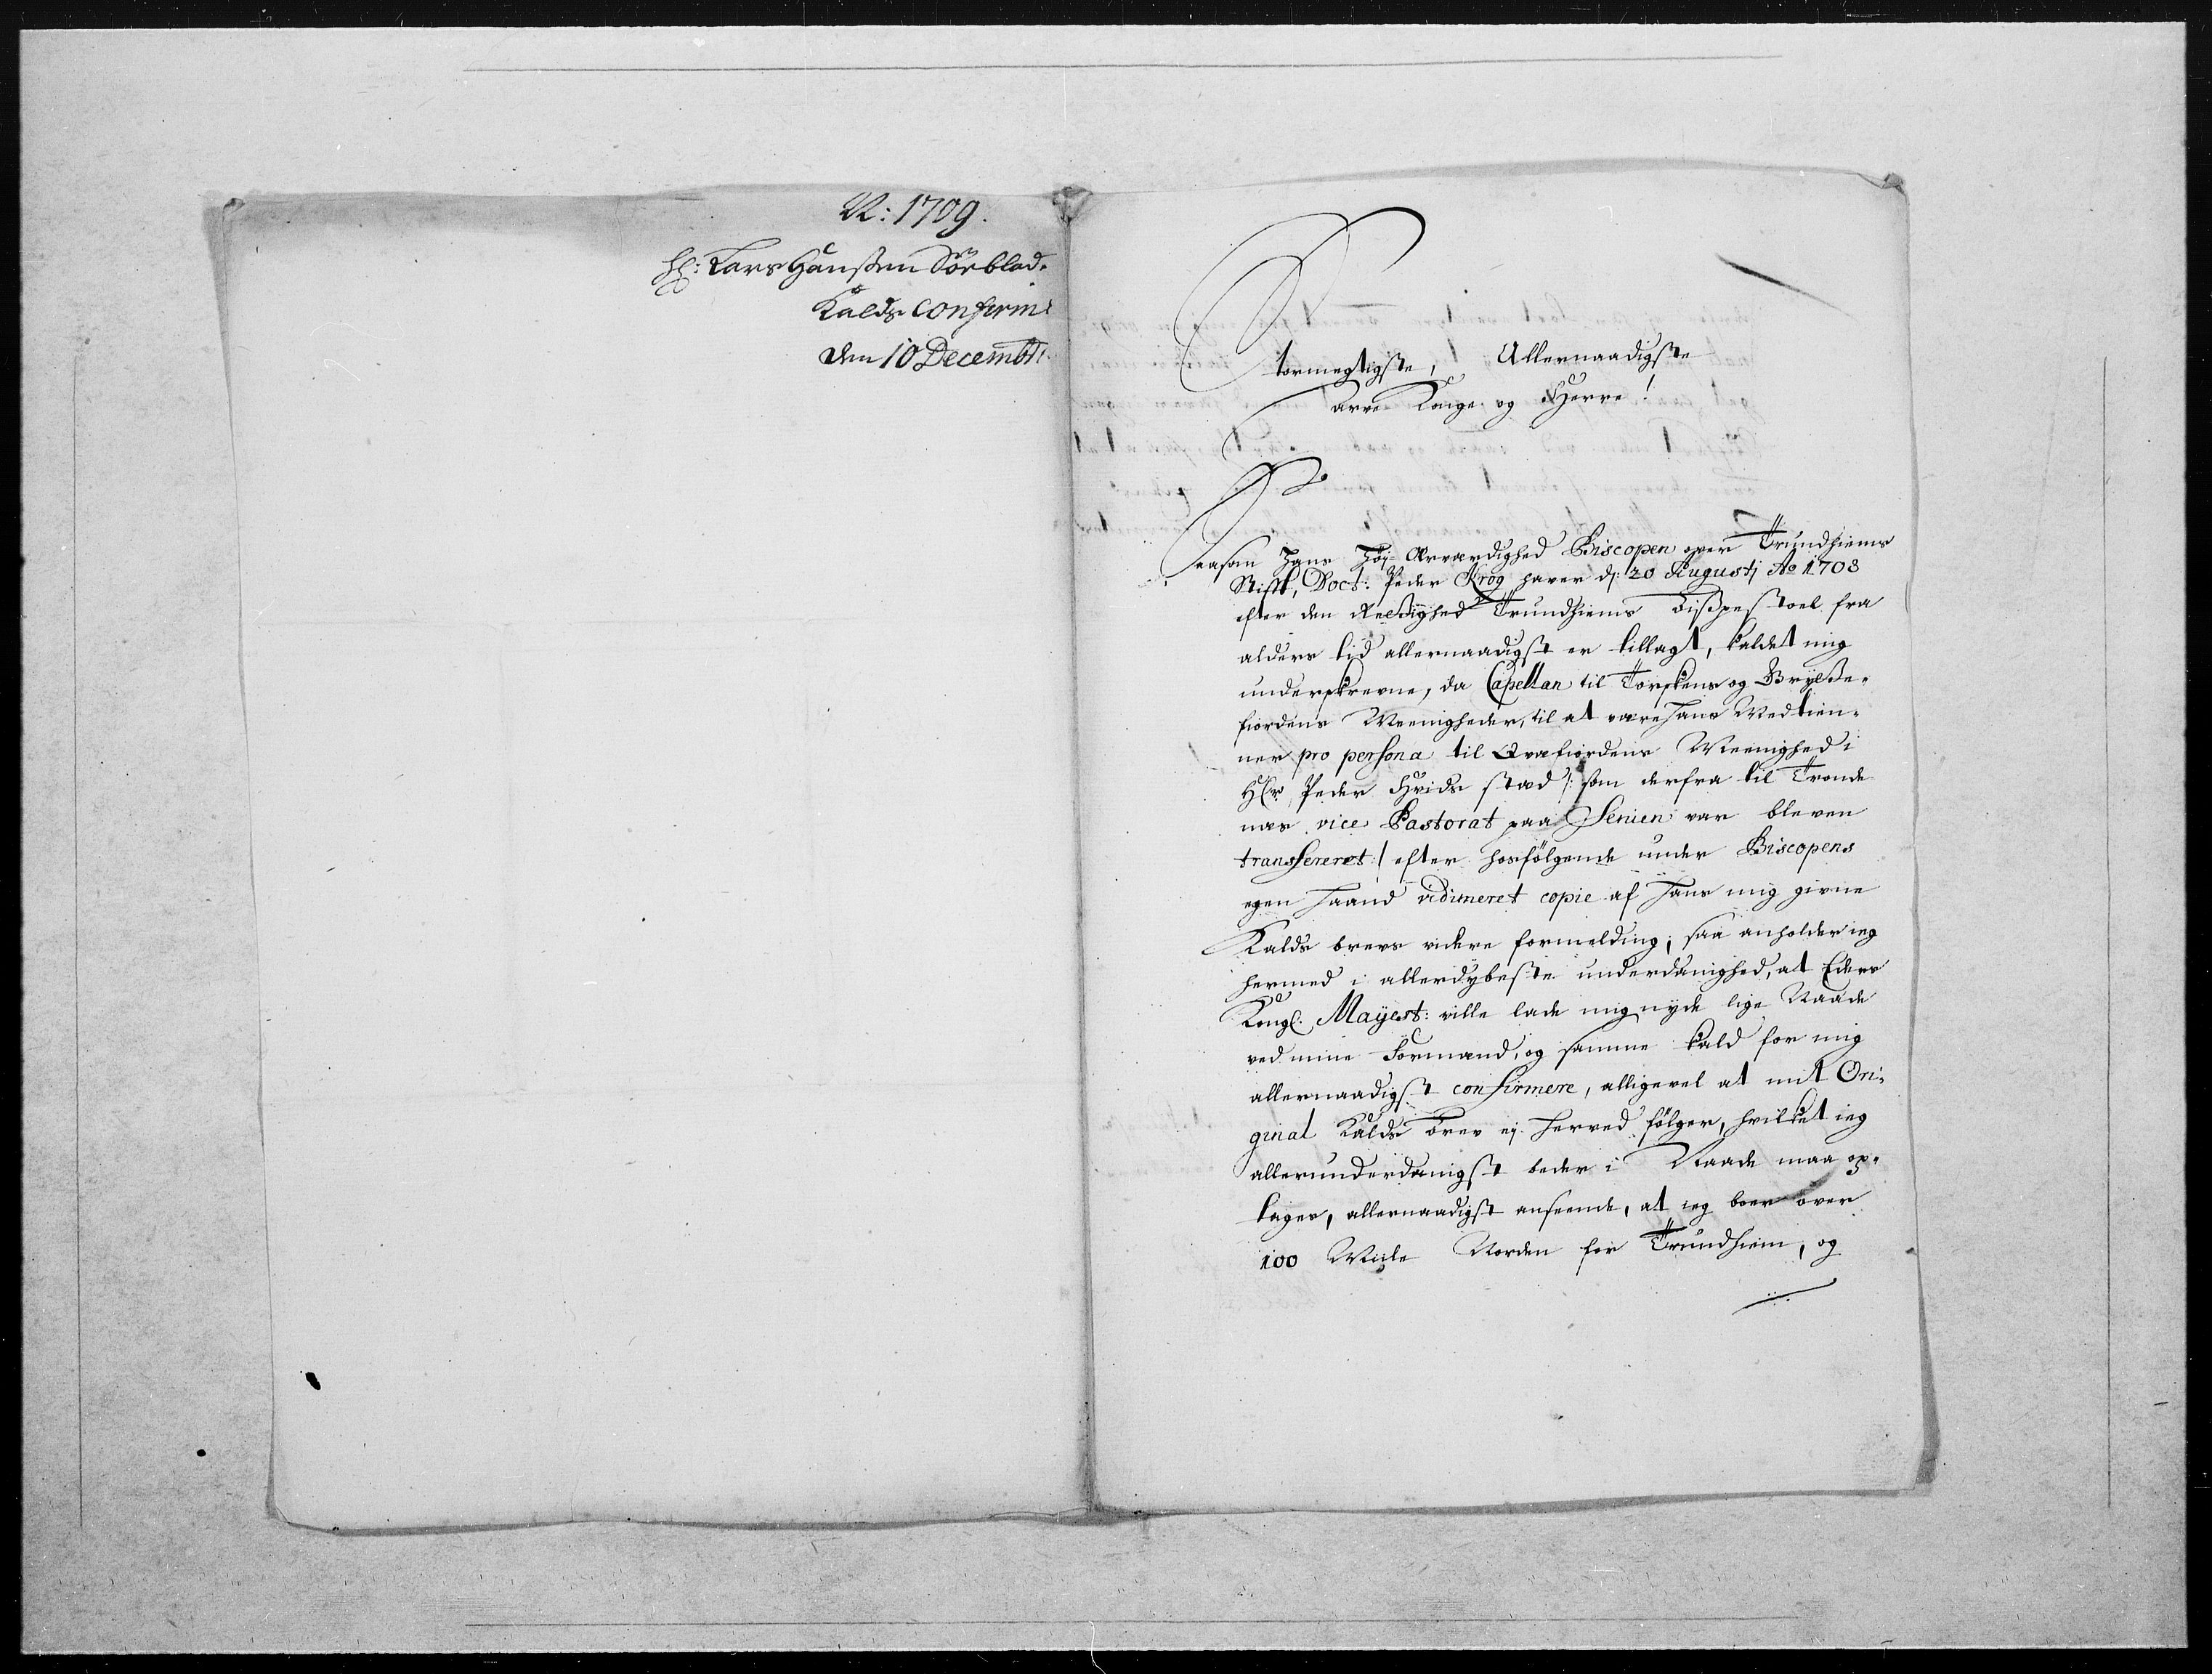 N: 1709.
Hr: Lars Hanssen Sørblad.
Kalds confirm:
den 10 Decembr:
Stormegtigste, Allernaadigste
Arve Konge og Herre!
Saasom Hans Høj-Ærværdighed Biscopen over Trundhiems
Stift, Doct: Peder Krog haver dj: 20 Augustj Ao 1708
efter den Rettighed Trundhiems Bispestoel fra
alders tid allernaadigst er tillagt, kaldet mig
underskrevne, da Capellan til Torskens og
fiordens Meenigheder, til at være Hans Medtien-
ner pro persona til Qvæfiordens Meenighed i
Hr Peder Hvids stad /: som derfra til Tronde
næs vice Pastorat paa Senien var bleven
transfereret :/ efter hosfølgende under Biscopens
egen Haand vidimeret copie af Hans mig givne
Kalds brevs videre formelding; saa anholder ieg
hermed i allerdybeste underdanighed, at Eders
Kongl: Mayest: ville lade mig nyde lige Naade
ved mine Formænd, og samme kald for mig
allernaadigst confirmere, alligevel at mit Ori-
ginal Kalds brev ej herved følger, hvilket ieg
allerunderdanigst beder i Naade maa op-
tages, allernaadigst anseende, at ieg boer over
100 Miile Norden for Trundhiem, og